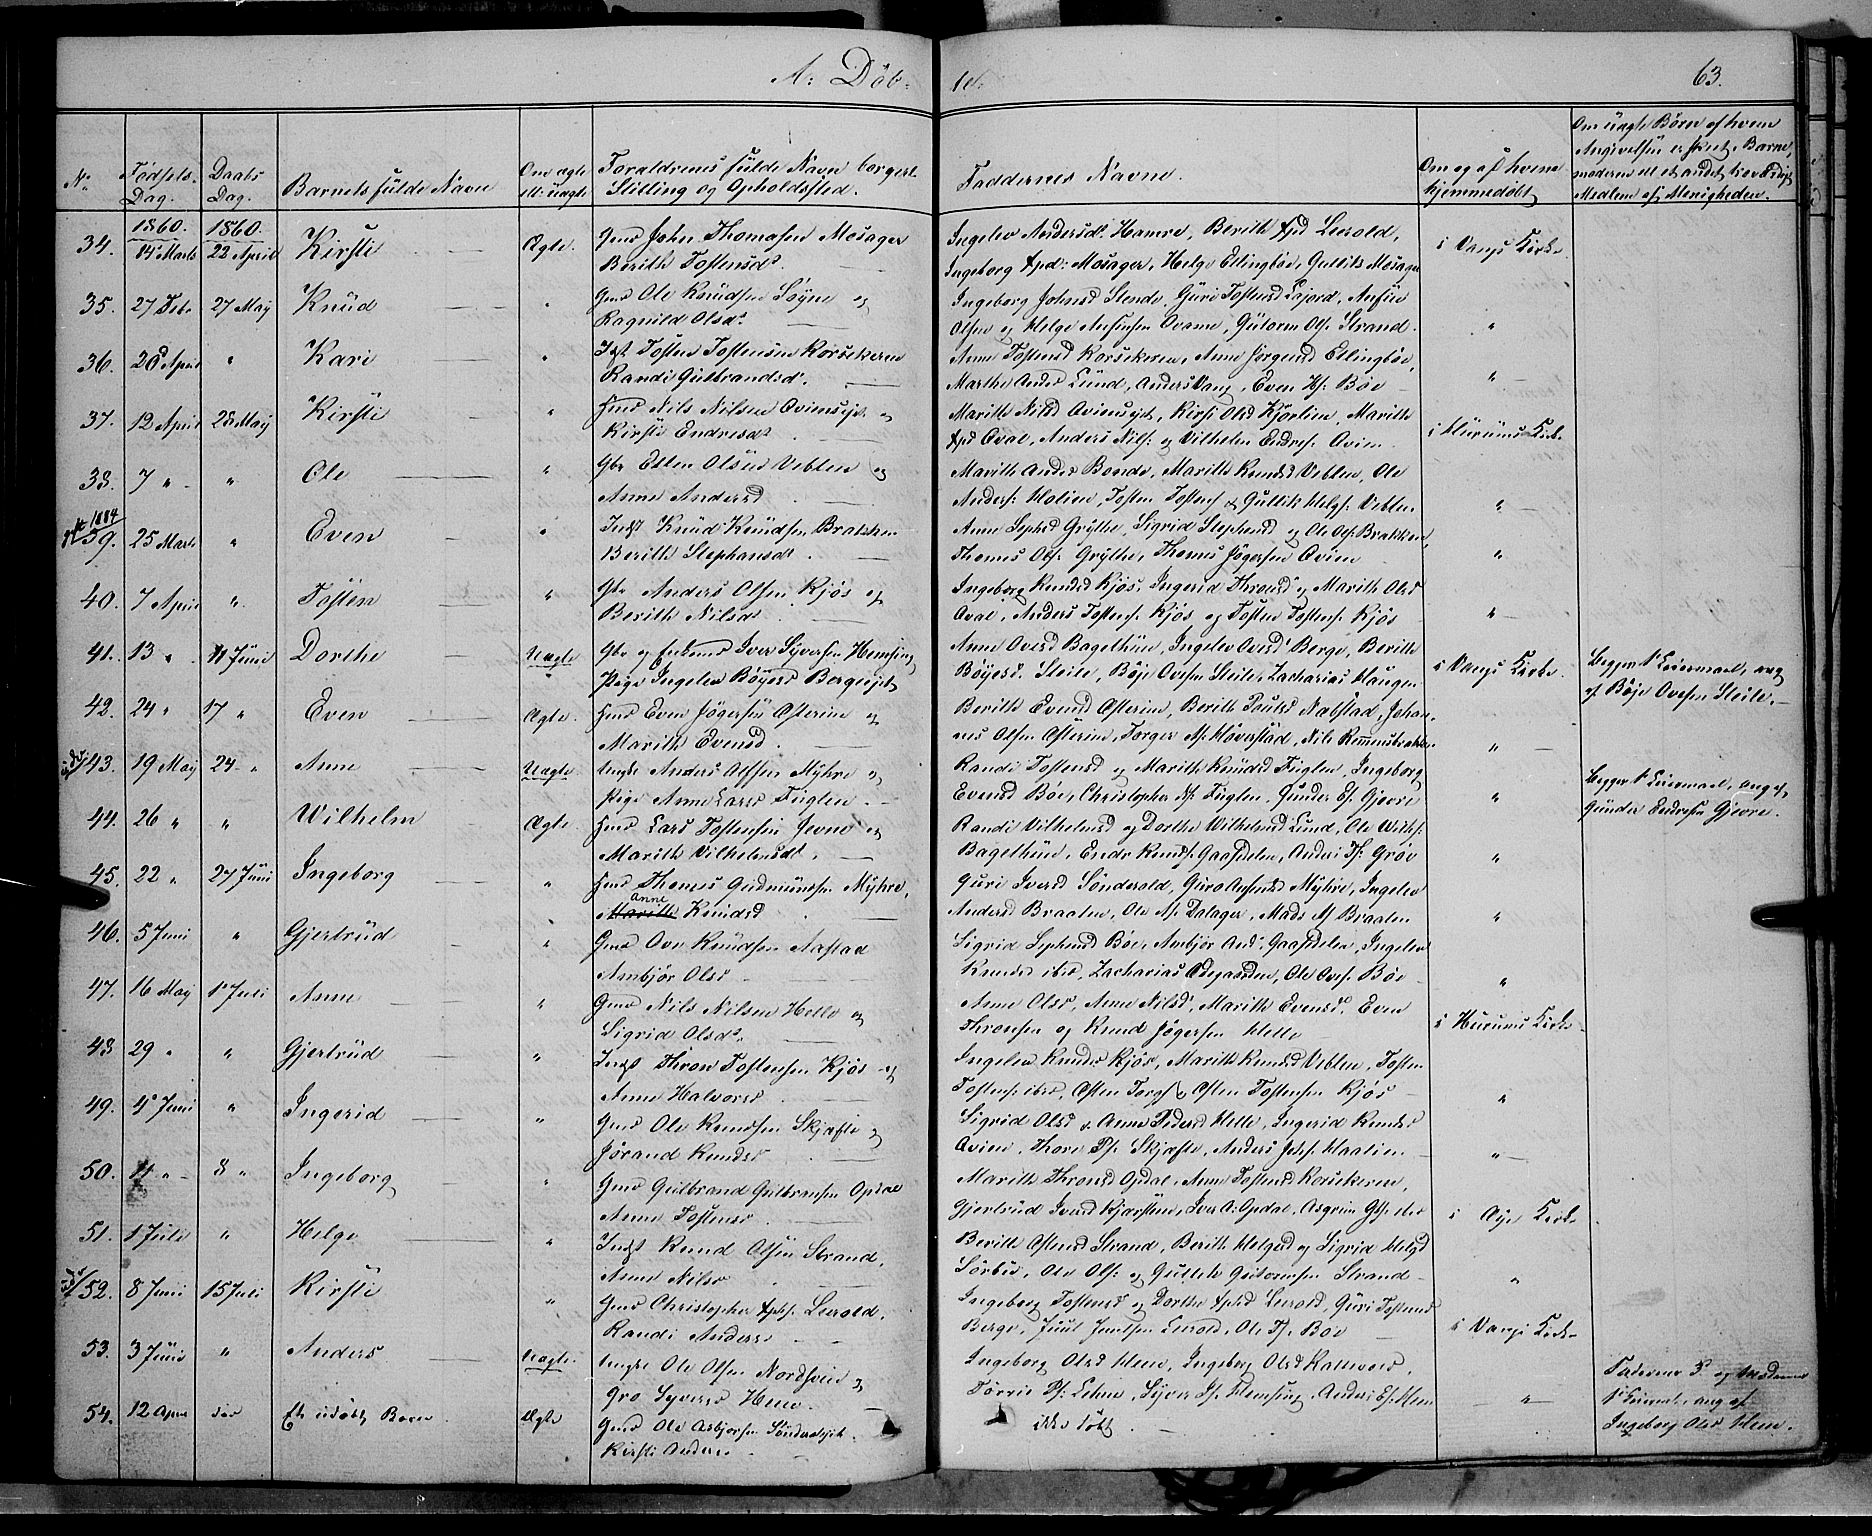 A. Döb- te.
63.
No.
Fødsels-Dag.
Daabs Dag.
Barnets fulde Navn
Om ægte ell. uægte
Forældrenes fulde Navn borgerl. Stilling og Opholdssted.
Faddernes Navne.
Om og af hvem hjemmedøbt
Om uægte Børn af hvem Angivelsen er skeet, Barnemoderen ell. et andet troværdigt Medlem af Menigheden.
1860. 1860.
34. 14 Marts 22 April Kirsti Ægte. Gmd John Thomasen Mosager
Berith Tostensd.
Ingelev Andersd. Hamre, Berith Leirold,
Ingeborg Mosager, Helge Ellingbøe, Gullik Mosager
i Vangs Kirke
35. 27 Febr 27 May Knud " Gmd Ole Knudsen Søyne og
Ragnild Olsd.
Ingeborg Johnsd Stende, Guri Tostensd Lajord, Anfin
Olsen og Helge Anfinsen Qvame, Gutorm Ols. Strand. "
36. 20 April " Kari " Inst Tosten Tostensen Korsekeren
Randi Gulbrandsd.
Anne Tostensd Korsekeren, Anne Jørgensd Ellingbøe,
Marthe Andsd Lund, Anders Vang, Even Bøe "
37. 12 April 28 May Kirsti " Hmd Nils Nilsen Ovimsejet og
Kirsti Endresd.
Marith Nilsd Ovimsejet, Kirsti Olsd Kjørlien, Marith
Qval, Anders Nils. og Vilhelm Endres. Ovien
i Hurums Kirke
38. 7 " " Ole " Gbr Elling Olsen Veblen og
Anne Andersd
Marith Andsd Bonde, Marith Knudsd Veblen, Ole
Anders. Holien, Tosten Tostens. & Gullik Helgs. Veblen "
1884
39. 25 Marts " Even " Inst Knud Knudsen Brakken
Berith Stephansd.
Anne Stephsd Grythe, Sigrid Stephensd og Ole Ols. Brakken,
Thomes Ols. Grythe, Thomes Jøgersen Ovien "
40. 7 April " Tosten " Gbr Anders Olsen Kjøs og
Berith Nilsd.
Ingeborg Knudsd Kjøs, Ingerid Thronsd, Marith Olsd
Qval, Anders Tostens. Kjøs og Tosten Tostens. Kjøs "
41. 13 " 11 Juni Dorthe Uægte Gbr og Enkemd Iver Syversen Hemsing
Pige Ingelev Böyesd Bergsejet
Anne Ovesd Bagethun, Ingelev Ovesd Berge, Berith
Böyesd. Steile, Böje Ovesen Steile, Zacharias Haugen
i Vangs Kirke
Begges 1ste Leiermaal, ang.
af Böje Ovesen Steile.
42. 24 " 17 " Even Ægte. Hmd Even Jøgersen Asterim og
Marith Evensd.
Berith Evensd Asterim, Berith Poulsd Nalstad, Johan-
nes Olsen Asterim, Torger As. Høverstad, Nils Remmensbrakken "
43. 19 May 24 " Anne Uægte Ungkr Anders Olsen Myhre og
Pige Anne Larsd Fuglen
Randi Tostensd og Marith Knudsd Fuglen, Ingeborg
Evensd Bøe, Christopher Fuglen, Gunder Es. Gjevre "
Begges 1ste Leiermaal, ang. af
Gunder Endresen Gjevre.
44. 26 " " Wilhelm Ægte. Hmd Lars Tostensen Jevne og
Marith Vilhelmsd.
Randi Vilhelmsd og Dorthe Wilhelmsd Lund, Ole Wilhs.
Bagethun, Endre Knuds. Gaasdelen, Anders Ts. Grøv "
45. 22 " 24 Juni Ingeborg " Hmd Thomes Gudmundsen Myhre,
Anne Knudsd
Guri Iversd Sönderold, Guro Anfinsd Myhre, Ingelev
Andersd Braaten, Ole As. Dalager, Mads As Braaten "
46. 5 Juni " Gjertrud " Gmd Ove Knudsen Aastad
Ambjör Olsd
Sigrid Stephensd Bøe, Ambjör And. Gaasdelen, Ingelev
Knudsd ibid, Zacharias Ødegaarden, Ole Oves. Bøe "
47. 16 May 1 Juli Anne " Gmd Nils Nilsen Helle og
Sigrid Olsd.
Anne Olsd, Anne Nilsd, Marith Evensd, Even
Thronsen og Knud Jøgersen Helle
i Hurums Kirke
48. 29 " " Gjertrud " Inst Thron Tostensen Kjøs og
Anne Halvorsd
Ingelev Knudsd Kjøs, Marith Knudsd Veblen, Tosten
Tostens. ibid, Osten Torgs. & Osten Tostensen Kjøs "
49. 4 Juni " Ingerid " Gmd Ole Knudsen Skjæfte og
Jørand Knudsd
Sigrid Olsd & Anne Pedersd Helle, Ingerid Knudsd
Ovien, Thore Ps. Skjæfte, Anders Johs. Haalien "
50. 11 " 8 " Ingeborg " Gmd Gulbrand Gulbransen Opdal
Anne Tostensd
Marith Thronsd Opdal, Anne Tostensd Korsekeren,
Gjertrud Iversd Kjærstein, Iver A. Opdal, Asgrim Gs. ibid
i Øye Kirke
51. 1 Juli " Helge " Inst Knud Olsen Strand,
Anne Nilsd
Berith Ostensd Strand, Berith Helgesd og Sigrid Helgsd
Sörbøe, Ole Ols. og Gullik Gutormsen Strand "
52. 8 Juni 15 Juli Kirsti " Gmd Christopher Leirold,
Randi Andersd
Ingeborg Tostensd og Dorthe Leirold, Guri Tostensd
Berge, Juul Juulsen Leirold, Ole Ts. Bøe
i Vangs Kirke
53. 3 Juni " Anders Uægte Ungkr Ole Olsen Nordsveen og
Gro Syversd Hemr.
Ingeborg Olsd Hem, Ingeborg Olsd Kattevold,
Torris Ps. Lehne, Syver Ps. Hemsing, Anders Es. Hem "
Faderens 3die og Moderens
1ste Leierm., ang. af
Ingeborg Olsd Hem.
54. 12 April død Et udöbt Barn. Ægte Gmd Ole Asbjørnsen Sönderolsejet
Kirsti Andersd
ikke døbt